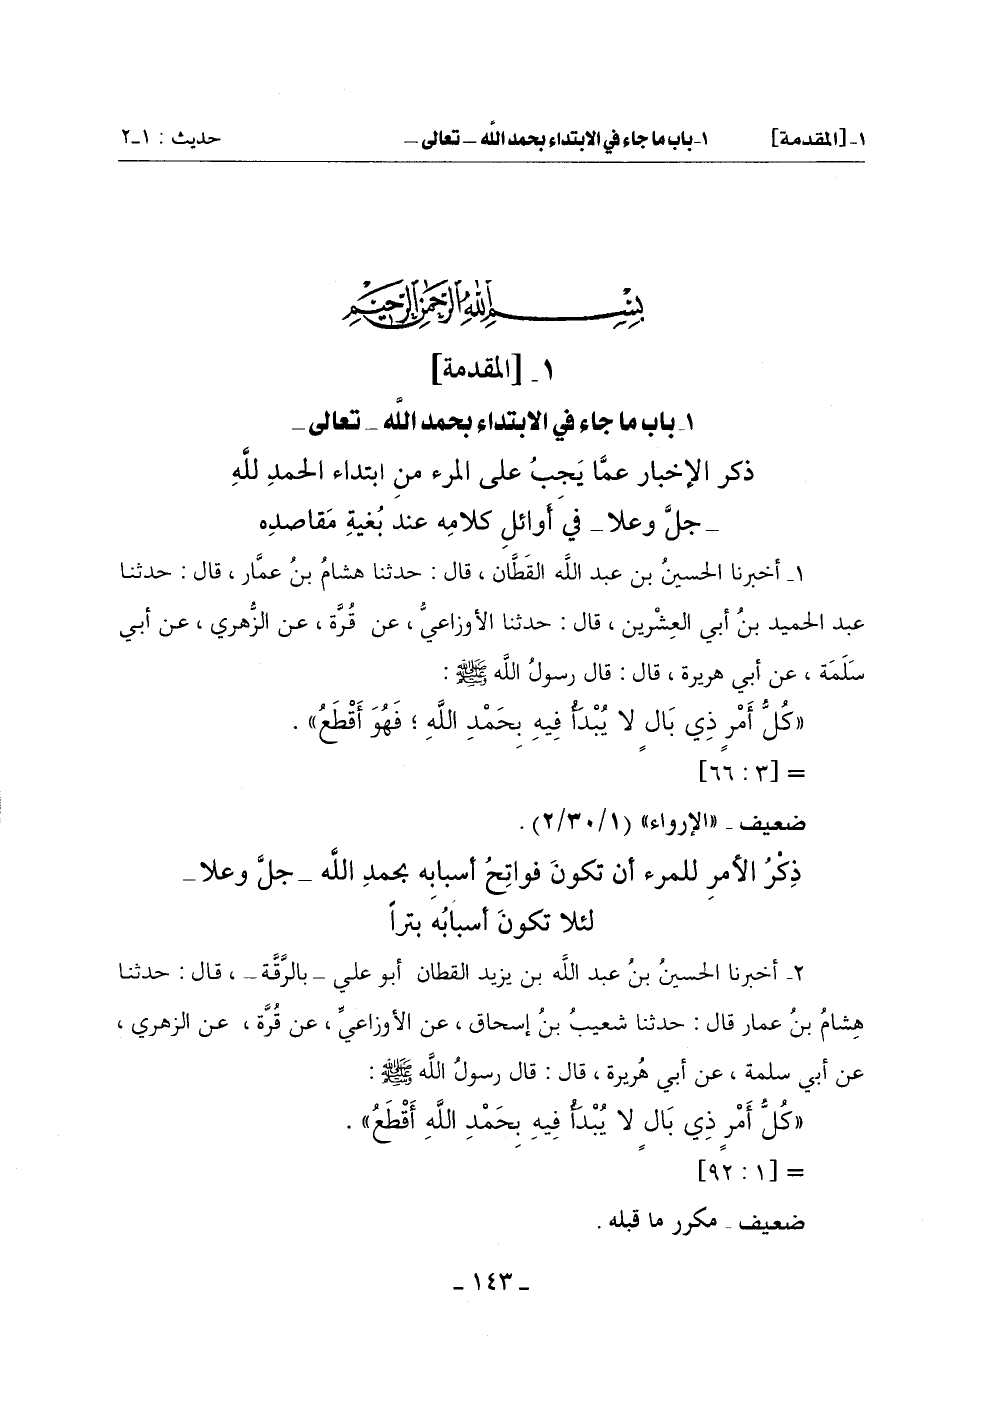 ١ـ [المقدمة] ١ـ باب ما جاء في الابتداء بحمد اللَّه ـ تعالى ـ حديث : ١ـ٢
بِسْمِ اللهِ الرَّحْمَنِ الرَّحِيمِ
١ـ [المقدمة]
١ـ باب ما جاء في الابتداء بحمد اللَّه ـ تعالى ـ
ذكر الإخبار عمَّا يَجِبُ على المرء من ابتداء الحمدِ للَّهِ
ـ جلَّ وعلا ـ في أَوائلِ كلامِه عند بُغيةِ مَقاصدِه
١ـ أخبرنا الحسينُ بن عبد اللَّه القَطَّان ، قال : حدثنا هشامُ بنُ عمَّار ، قال : حدثنا
عبد الحميد بنُ أبي العِشْرين ، قال : حدثنا الأوزاعيُّ ، عن قُرَّة ، عن الزُّهري ، عن أبي
سَلَمَة ، عن أبي هريرة ، قال : قال رسولُ اللَّه ﷺ :
«كُلُّ أَمْرٍ ذِي بَالٍ لا يُبْدَأُ فيه بِحَمْدِ اللَّهِ ؛ فَهُوَ أَقْطَعُ» .
= [٣ : ٦٦]
ضعيف ـ «الإرواء» (٢/٣٠/١) .
ذِكْرُ الأمرِ للمرء أن تكونَ فواتِحُ أسبابِه بحمدِ اللَّه ـ جلَّ وعلا ـ
لئلا تكونَ أسبابُه بتراً
٢ـ أخبرنا الحسينُ بنُ عبد اللَّه بن يزيد القطان أبو علي ـ بالرَّقَّة ـ ، قال : حدثنا
هِشامُ بنُ عمار قال : حدثنا شعيبُ بنُ إسحاق ، عن الأوزاعيِّ ، عن قُرَّة ، عن الزهري ،
عن أبي سلمة ، عن أبي هُريرة ، قال : قال رسولُ اللَّه ﷺ :
«كُلُّ أَمْرٍ ذِي بَالٍ لا يُبْدَأُ فِيهِ بِحَمْدِ اللَّهِ أَقْطَعُ» .
= [١ : ٩٢]
ضعيف ـ مكرر ما قبله .
ـ ١٤٣ ـ